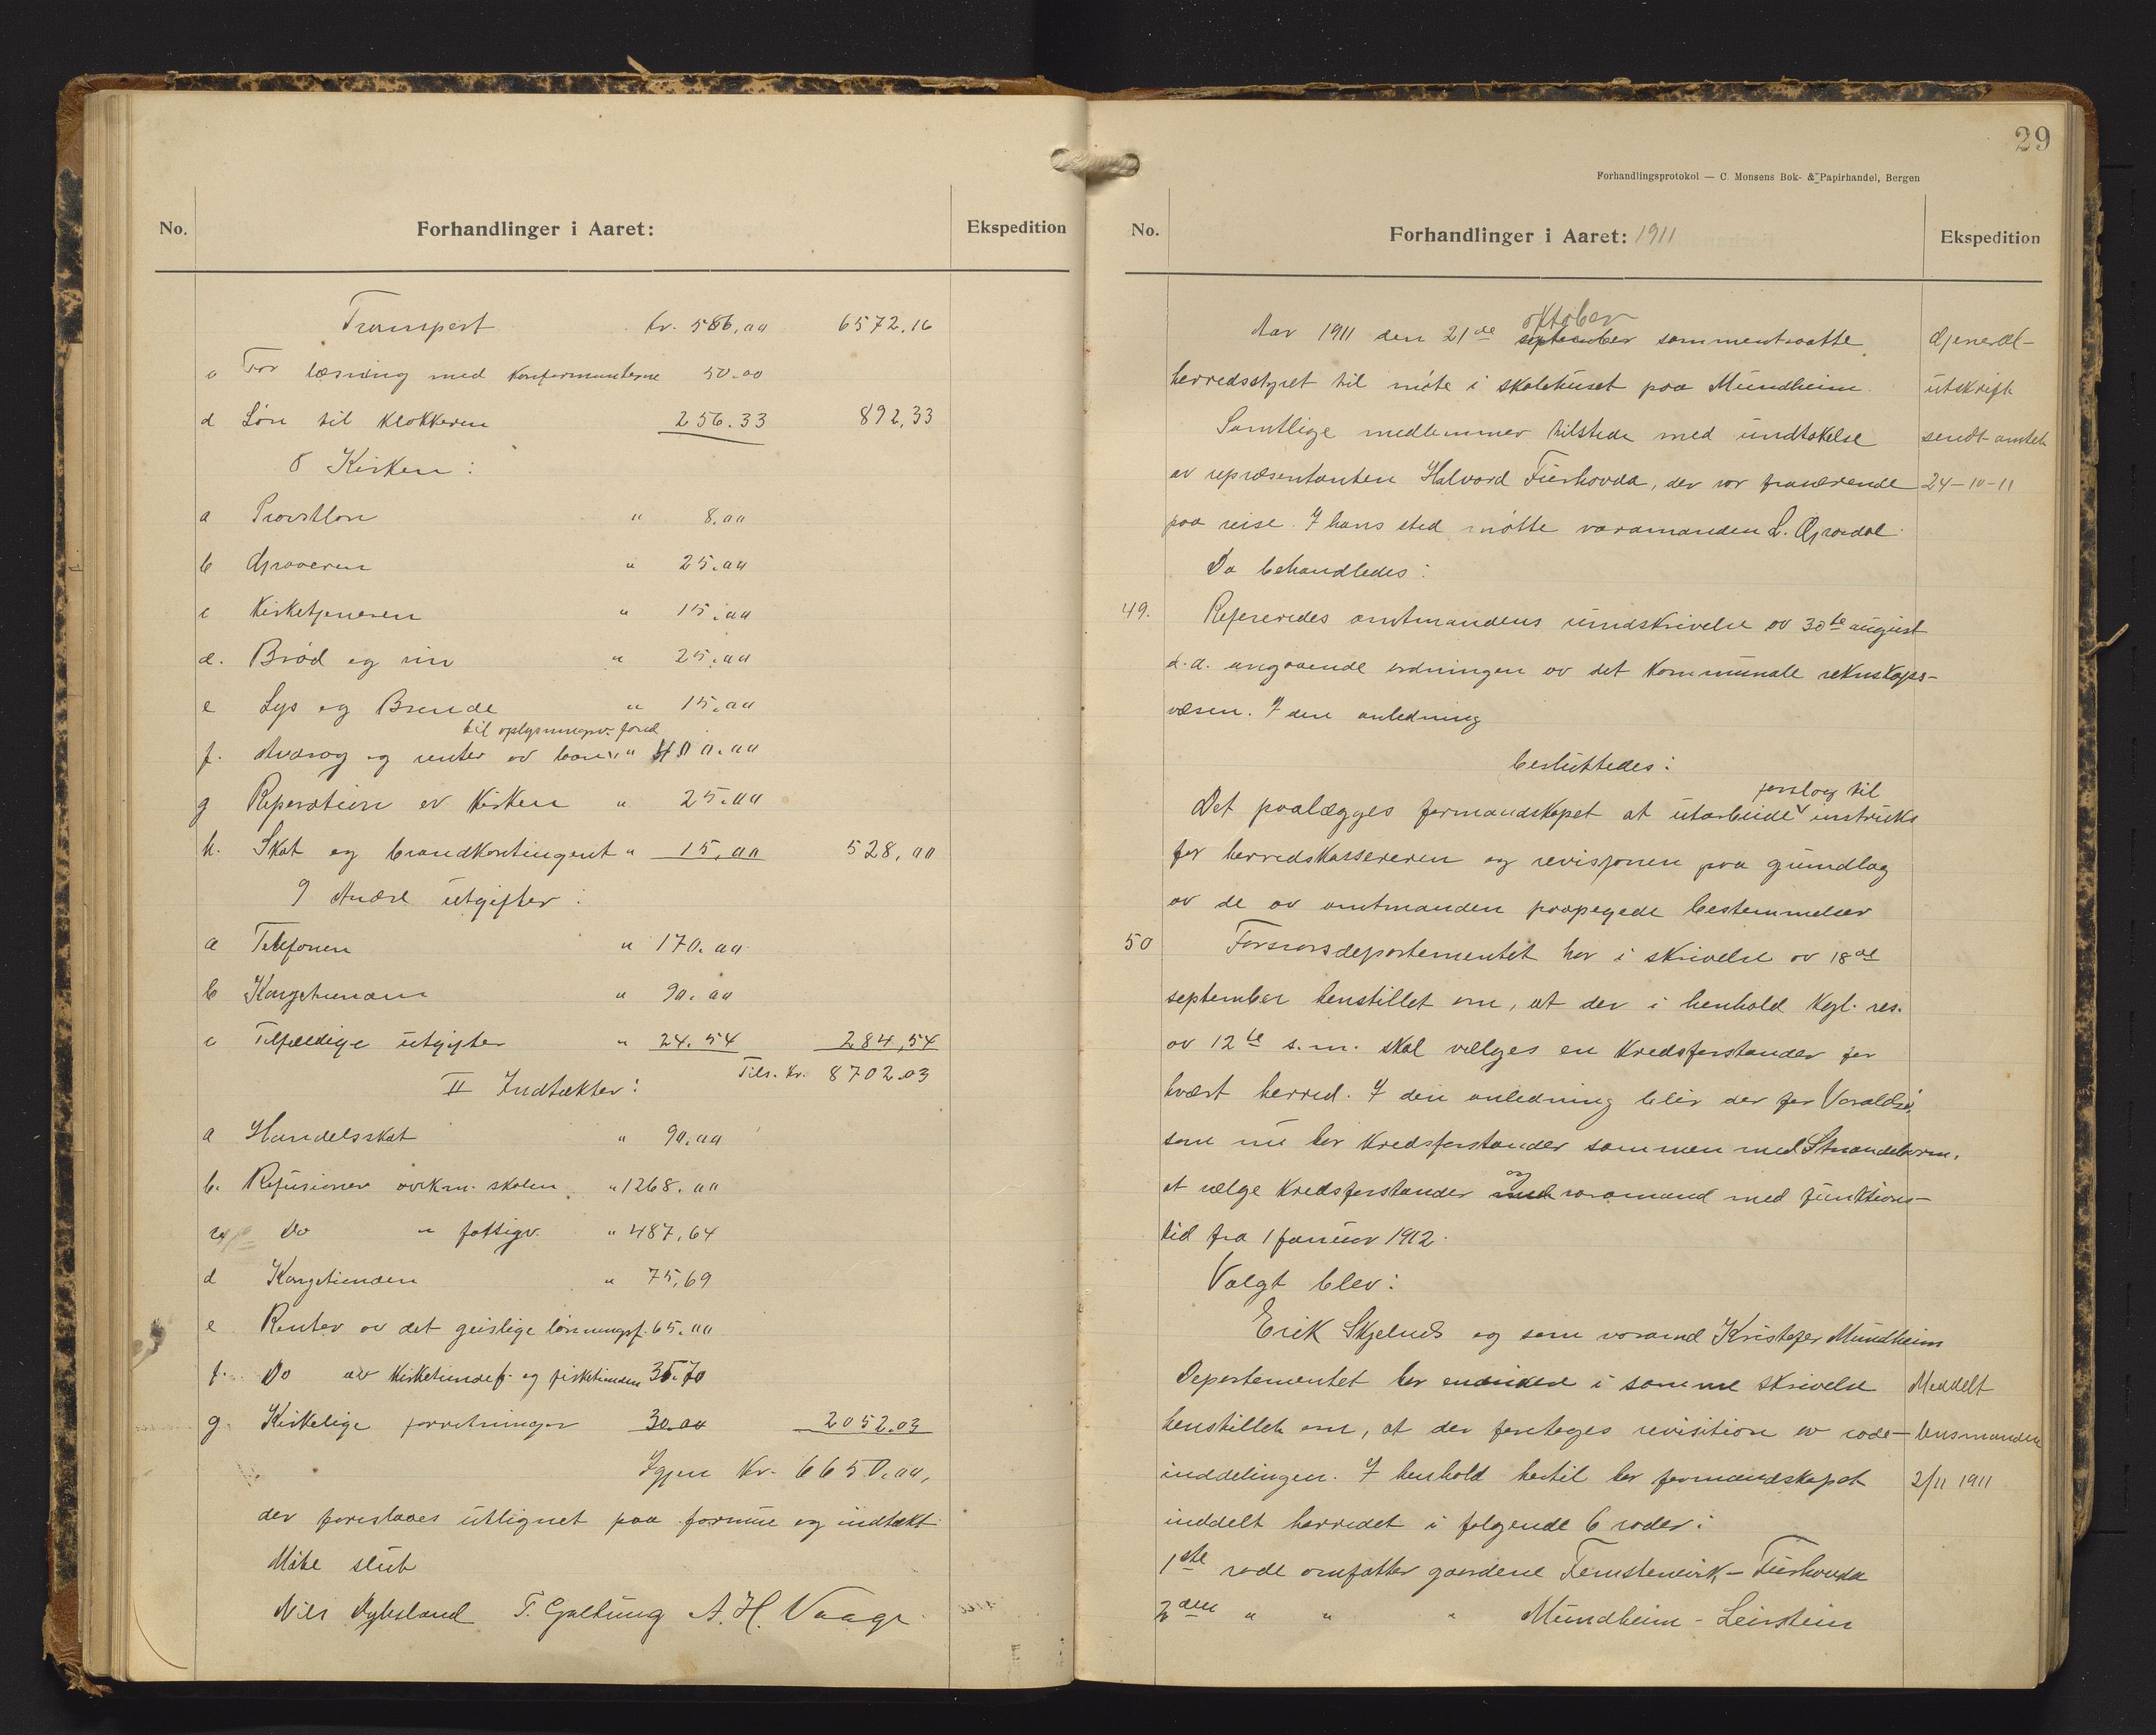 No.
Forhandlinger i Aaret:
Ekspedition
Transport kr. 586,00 6572,16
c For læsning med konfirmanterne 50.00
d Løn til klokkeren 256.33 892,33
8 Kirken:
a Provstløn " 8.00
b Graveren " 25.00
c Kirketjeneren " 15.00
d. Brød og vin " 25.00
e Lys og Brende " 15.00
til oplysningsv. fond
f. Avdrag og renter av laan " 400.00
g Reperation av kirken " 25.00
h. Skat og brandkontingent " 15.00 528,00
9 Andre utgifter:
a Telefonen " 170.00
b Kongetienden " 90.00
c Tilfældige utgifter " 24.54 284,54
Tils. kr. 8702.03
II Indtækter:
a Handelsskat " 90.00
b. Refusioner avkm. skolen " 1268.00
Do " fattigv. " 487,64
d Kongetienden " 75,69
e Renter av det geislige lønningsf. 65.00
f. Do av kirketiendef. og fisketienden 35.70
g. Kirkelige forretninger 30.00 2052.03
Igjen kr. 6650.00,
der foreslaaes utlignet paa formue og indtækt
Møte slut
Nils Dybsland T. Galtung A. H. Vaage
29
Forhandlingsprotokol — C. Monsens Bok- & Papirhandel, Bergen
No.
Forhandlinger i Aaret: 1911
Ekspedition
oktober
Aar 1911 den 21de september sammentraatte Gjenerel-
herredsstyret til møte i skolehuset paa Mundheim. utskrift
Samtlige medlemmer tilstede med undtakelse sendt amtet
av repræsentanten Halvard Tueshovda, der var fraværende 24-10-11
paa reise. I hans sted møtte varamanden L. Gjerdal.
Da behandledes:
49. Refereredes amtmandens rundskrivelse av 30te august
d.a. angaaende ordningen av det kommunale rekneskaps-
væsen. I den anledning
besluttedes:
forslag til
Det paalægges formandskapet at utarbeide instruks
for herredskassereren og revisjonen paa grundlag
av de av amtmanden paapegede bestemmelser
50 Forsvarsdepartementet har i skrivelse av 18de
september henstillet om, at der i henhold kgl. res.
av 12te s.m. skal vælges en kredsforstander for
hvært herred. I den anledning blir der for Varaldsø,
som nu har kredsforstander sammen med Strandebarm,
og
at vælge kredsforstander med varamand med funktions-
tid fra 1 januar 1912.
Valgt blev:
Erik Skjelnes og som varamd Kristofer Mundheim
Departementet har endvidere i samme skrivelse Meddelt
henstillet om, at der foretages revisition av rode- lensmanden
inddelingen. I henhold hertil har formandskapet 2/11 1911
inddelt herredet i følgende 6 roder:
1ste rode omfatter gaardene Femstenevik – Tueshovda
2den " " " Mundheim – Leirstein